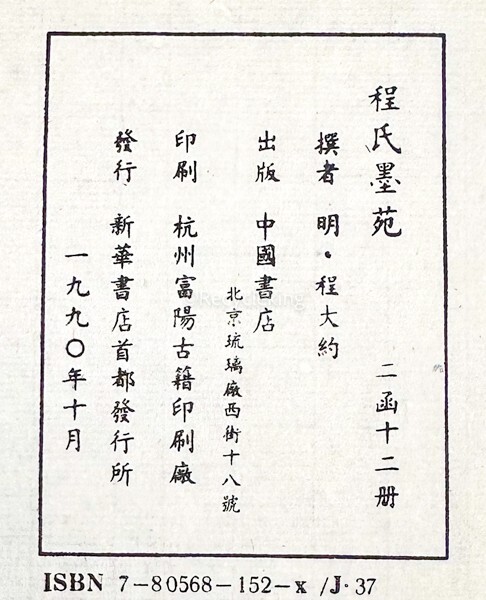 程氏墨苑 二函十二册
撰者 明·程大約
出版 中國書店
北京琉璃廠西街十八號
印刷 杭州富陽古籍印刷廠
發行 新華書店首都發行所
一九九〇年十月
ISBN 7-80568-152-x /J·37